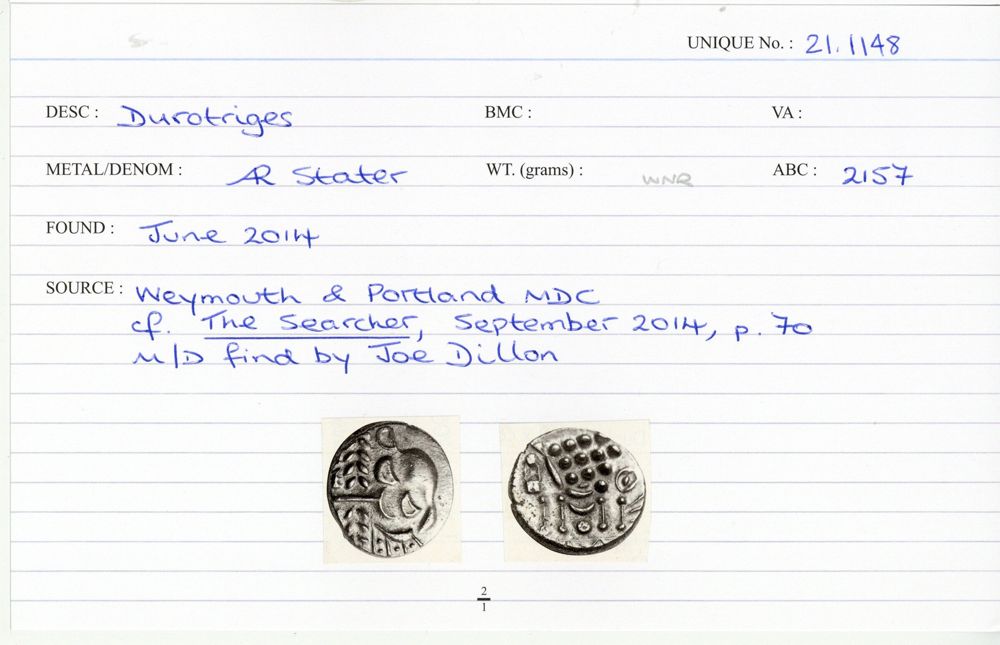 UNIQUE No. : 21.1148
DESC : Durotriges BMC : VA :
METAL/DENOM : AR Stater WT. (grams) : WNR ABC : 2157
FOUND : June 2014
SOURCE : Weymouth & Portland MDC
cf. The Searcher, September 2014, p. 70
M/D find by Joe Dillon
2
1